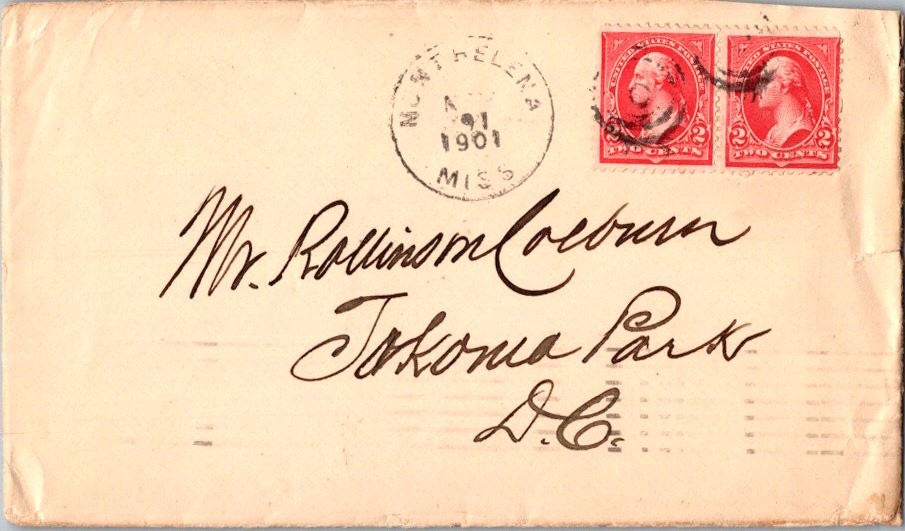 MONT HELENA
1901
MISS
UNITED STATES POSTAGE
2 TWO CENTS 2
UNITED STATES POSTAGE
2 TWO CENTS 2
Mr. Rollinson Colburn
Takoma Park
D.C.